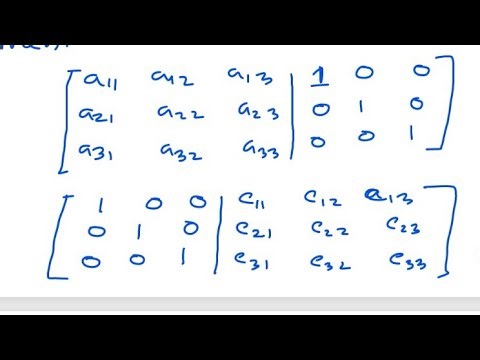 a11 a12 a13 | 1 0 0
a21 a22 a23 | 0 1 0
a31 a32 a33 | 0 0 1
1 0 0 | c11 c12 c13
0 1 0 | c21 c22 c23
0 0 1 | c31 c32 c33